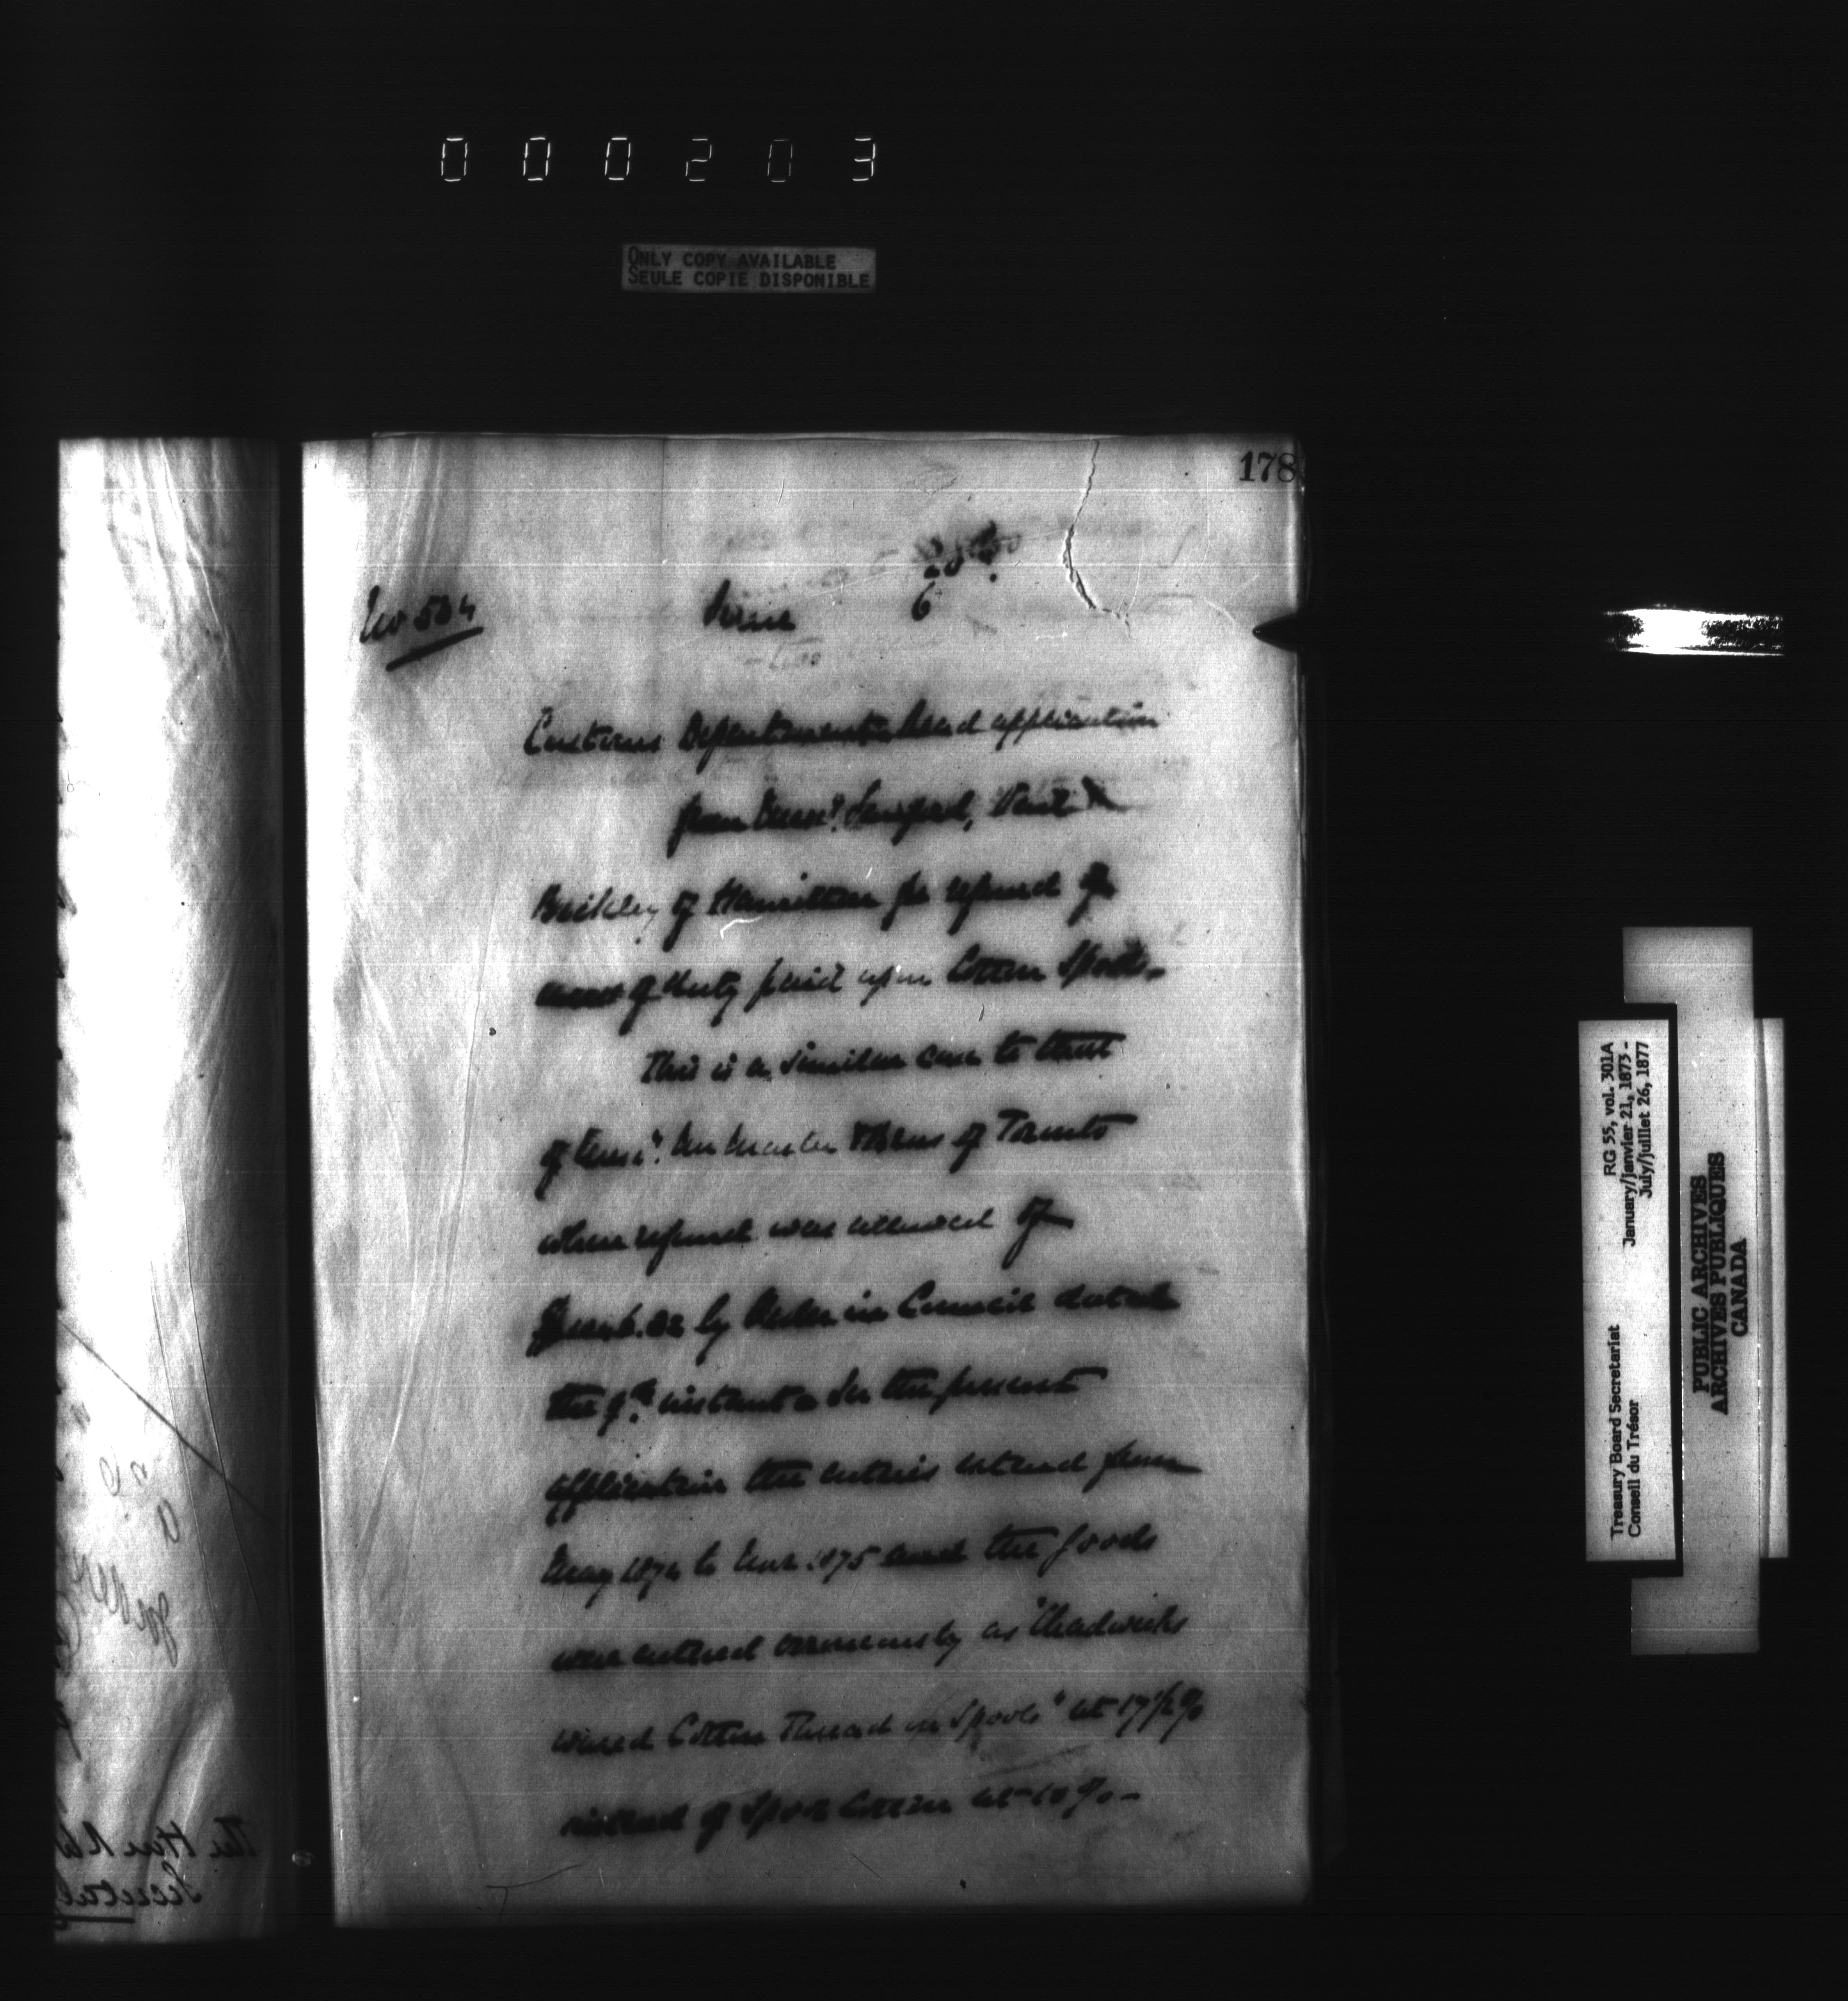 000203
ONLY COPY AVAILABLE
SEULE COPIE DISPONIBLE
178
No 504
June 6
Customs Department Read application
from Messrs. Sanford, Vail &
Bickley of Hamilton for refund of
excess of duty paid upon Cotton Spools.
This is a similar case to that
of Messrs. McMaster Bros of Toronto
when refund was allowed of
by Order in Council dated
the 9th instant In the present
application the entries extend from
May 1874 to Mar. 1875 and the goods
were entered erroneously as "Chadwicks
Cotton Thread on Spools" at 17 1/2 %
instead of Spool Cotton at 10 % -
The Hon
Secretary
RG 55, vol. 301A
January/janvier 21, 1873 -
July/juillet 26, 1877
Treasury Board Secretariat
Conseil du Trésor
PUBLIC ARCHIVES
ARCHIVES PUBLIQUES
CANADA